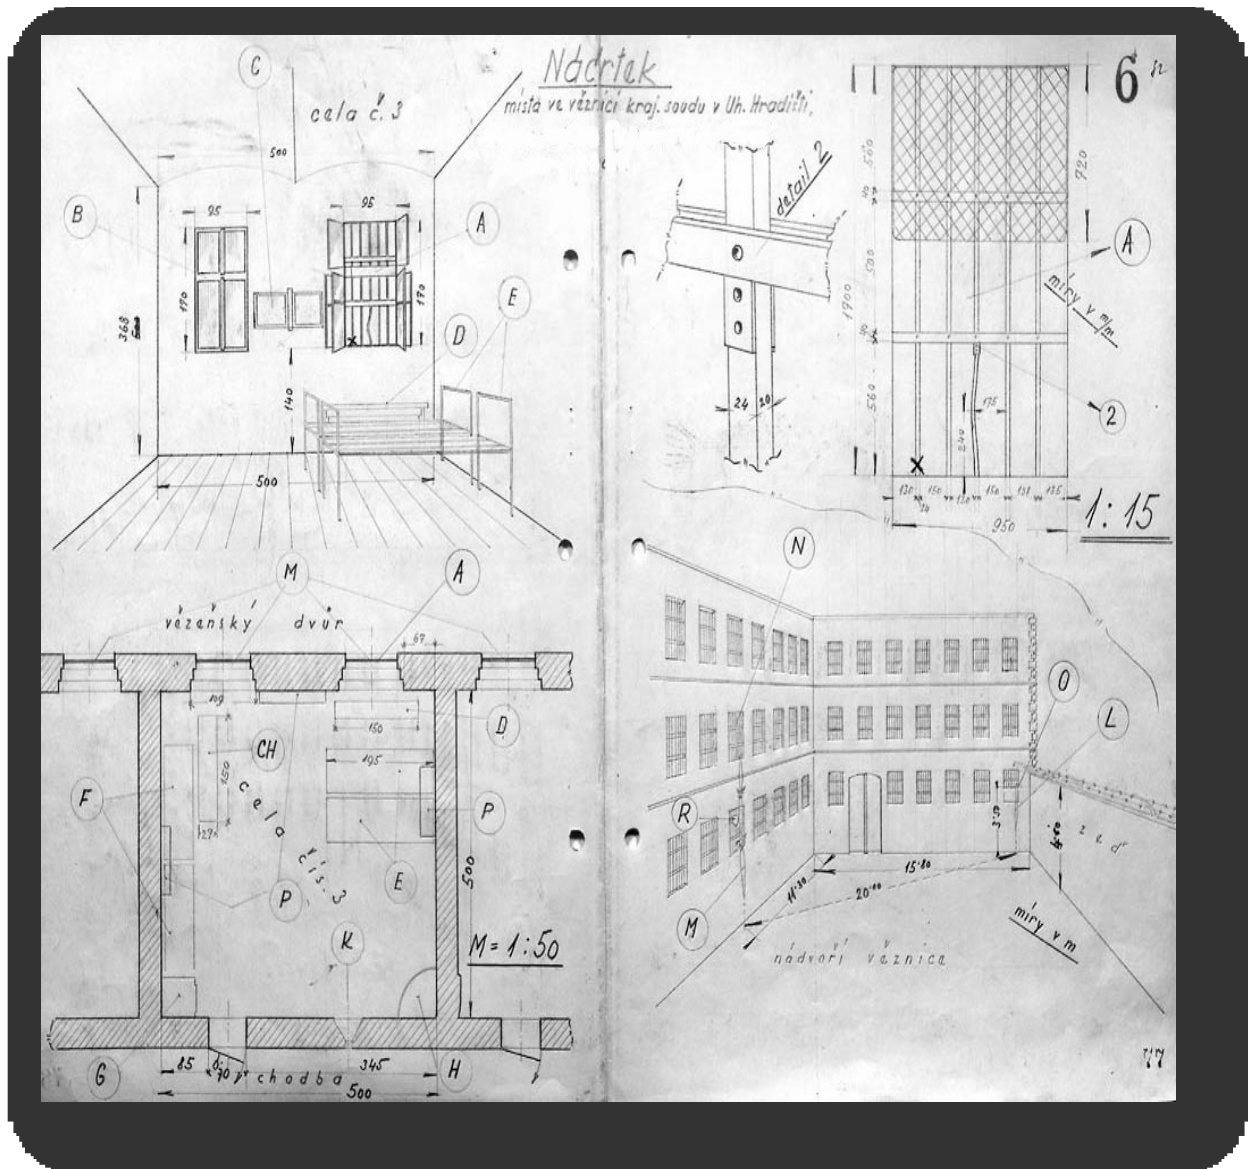 Náčrtek
místa ve věznici kraj. soudu v Uh. Hradišti,
6
cela č. 3
C
500
B
95
95
A
170
170
E
D
368
500
140
500
detail 2
24
20
560
40
500
40
560
1700
720
A
míry v m/m
2
175
240
130
24
150
130
150
131
135
950
1:15
M
A
vězeňský dvůr
67
109
150
D
CH
195
150
27
F
P
cela čís. 3
P
E
500
K
M = 1:50
G
85
70
345
H
chodba
500
N
O
L
R
3·50
zeď
15·80
11·30
20·10
M
míry v m
nádvoří věznice
77